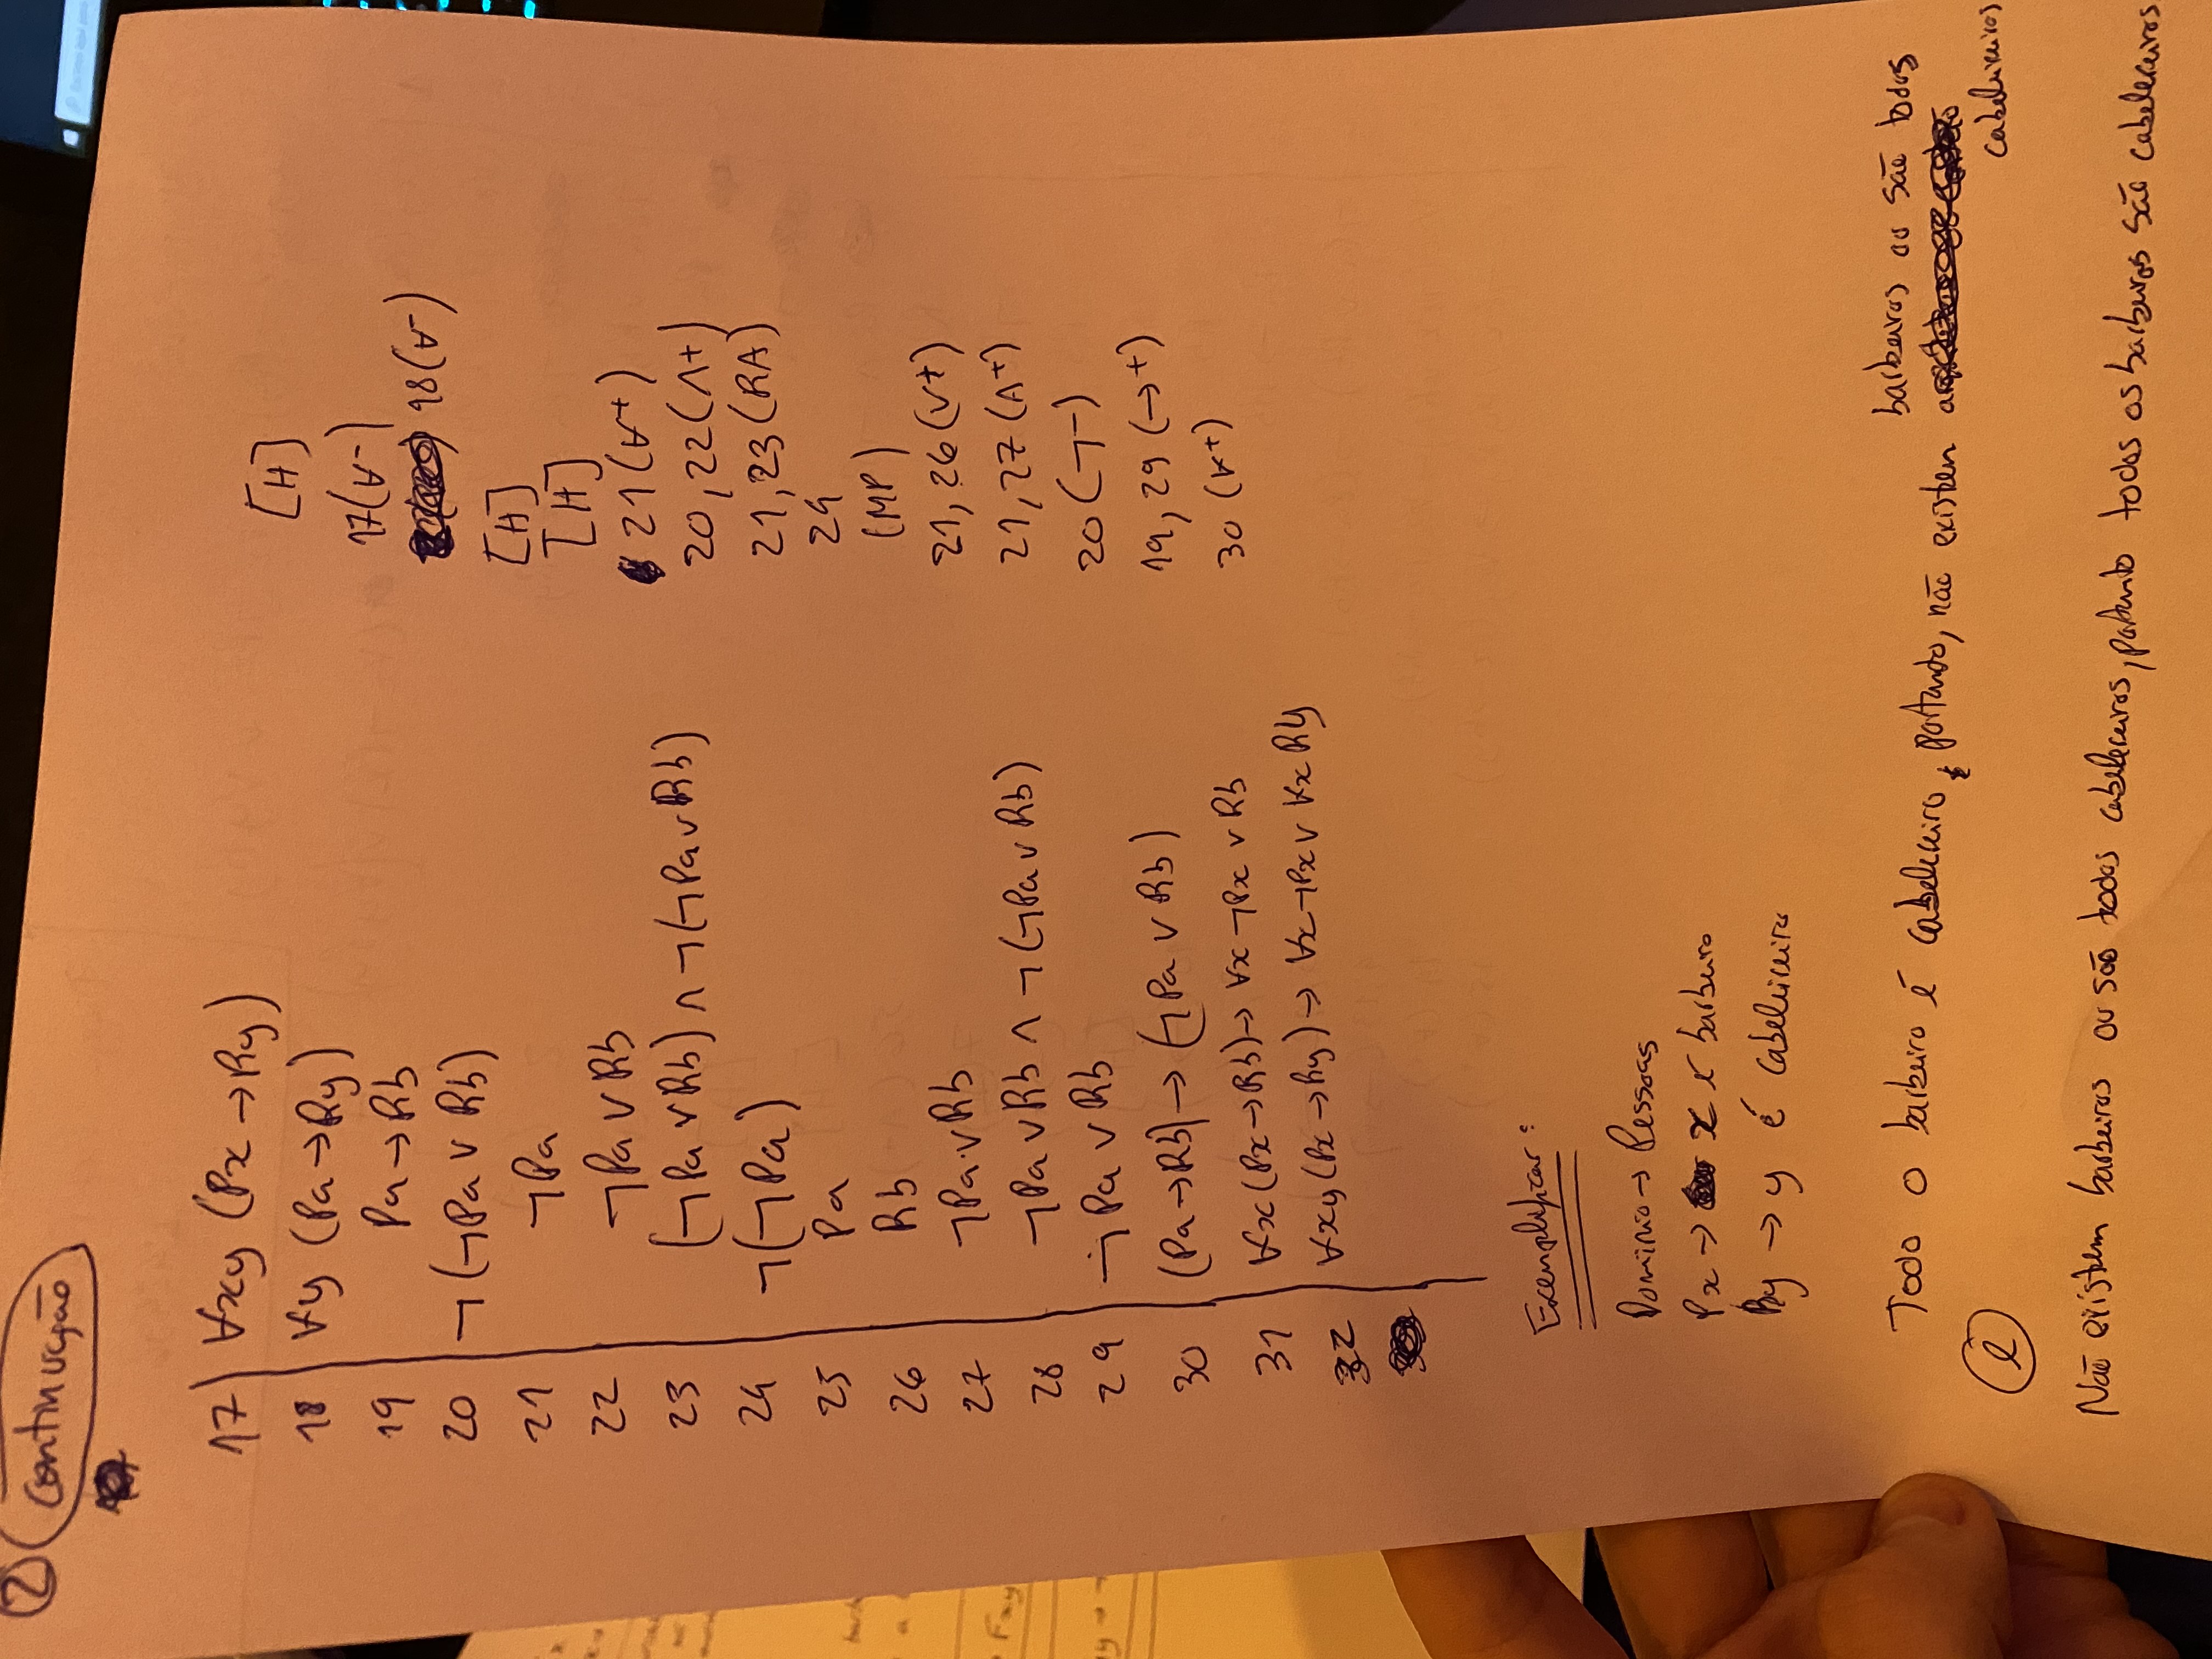 2 continuação
17 ∀xy (Px → Ry) [H]
18 ∀y (Pa → Ry) 17(∀-)
19 Pa → Rb 18(∀-)
20 ¬(¬Pa ∨ Rb) [H]
21 ¬Pa [H]
22 ¬Pa ∨ Rb 21(∀+)
23 (¬Pa ∨ Rb) ∧ ¬(¬Pa ∨ Rb) 20,22(∧+)
24 ¬(¬Pa) 21,23(RA)
25 Pa 24
26 Rb (MP)
27 ¬Pa ∨ Rb 21,26(∨+)
28 ¬Pa ∨ Rb ∧ ¬(¬Pa ∨ Rb) 21,27(∧+)
29 ¬Pa ∨ Rb 20(¬-)
30 (Pa → Rb) → (¬Pa ∨ Rb) 19,29(→+)
31 ∀x(Px → Rb) → ∀x ¬Px ∨ Rb 30(∀+)
32 ∀xy(Px → Ry) → ∀x ¬Px ∨ ∀x Ry
Exemplificar:
Dominio → Pessoas
Px → x é barbeiro
Ry → y é cabeleireiro
Todo o barbeiro é cabeleireiro, portando, não existem barbeiros ou são todos
cabeleireiros
e
Não existem barbeiros ou são todos cabeleireiros, portanto todos os barbeiros são cabeleireiros